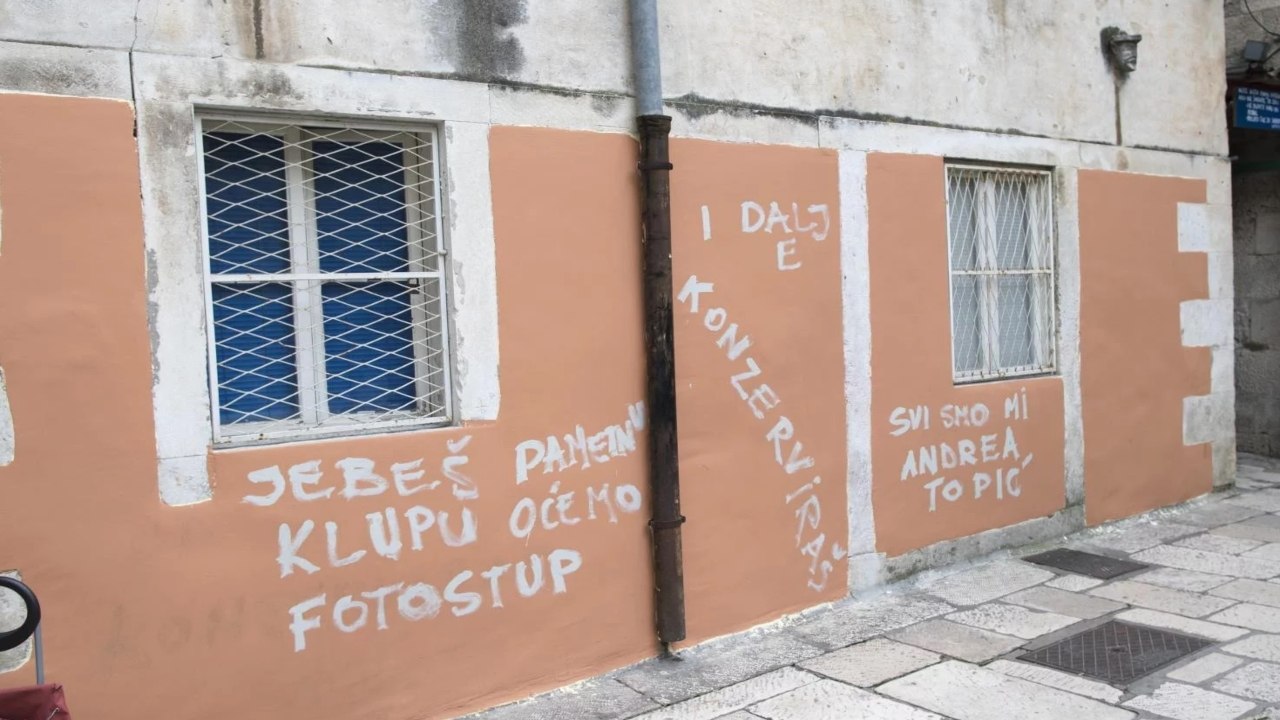 JEBEŠ PAMETNU
KLUPU OĆEMO
FOTOSTUP
I DALJ
E
KONZERVIRAŠ
SVI SMO MI
ANDREA
TOPIĆ